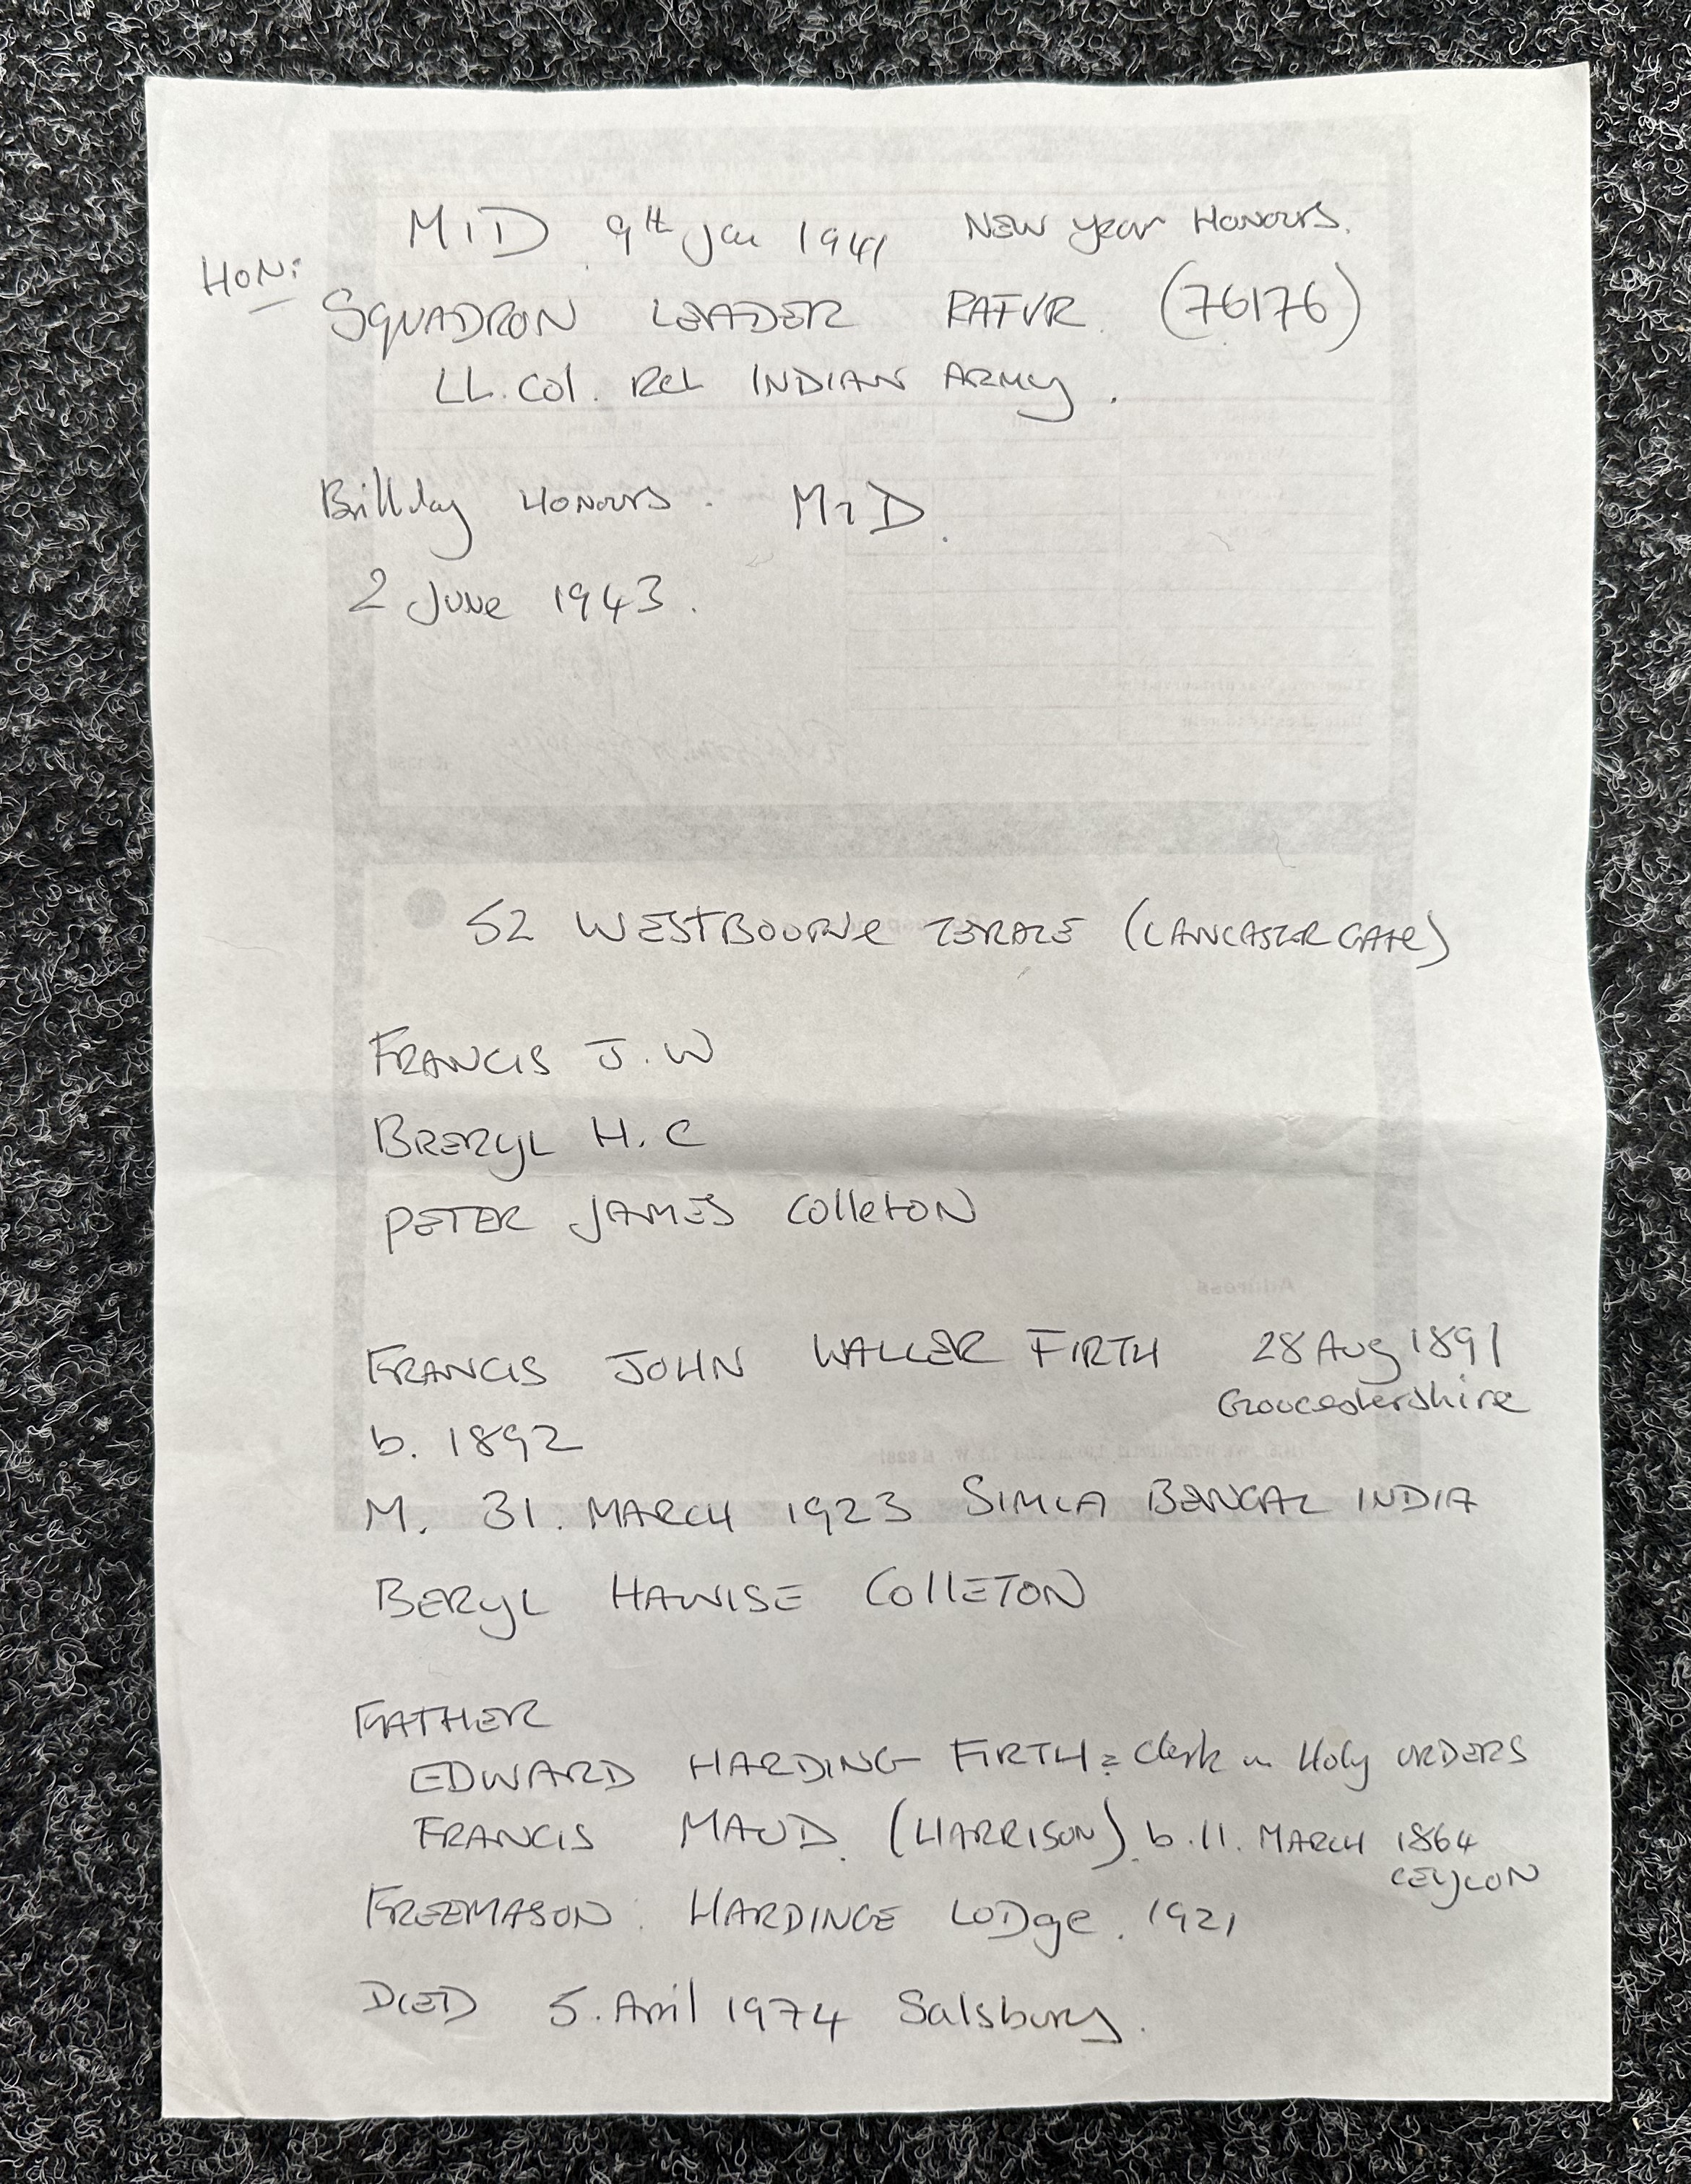 MID 9th Jan 1941 NEW year HONOURS.
HON:
SQUADRON LEADER RAFVR. (76176)
Lt. Col. Ret INDIAN ARMY.
Birthday HONOURS. MID.
2 June 1943.
52 WESTBOURNE TERACE (LANCASTER GATE)
FRANCIS J.W
BRERYL H.C
PETER JAMES COlletON
FRANCIS JOHN WALLER FIRTH 28 Aug 1891
Gloucestershire
b. 1892
M. 31. MARCH 1923 SIMLA BENGAL INDIA
BERYL HAWISE COllETON
FATHER
EDWARD HARDING FIRTH = Clerk in Holy ORDERS
FRANCIS MAUD. (HARRISON). b. 11. MARCH 1864
CEYLON
FREEMASON: HARDINGE LODge. 1921
DIED 5. April 1974 Salsbury.
Address